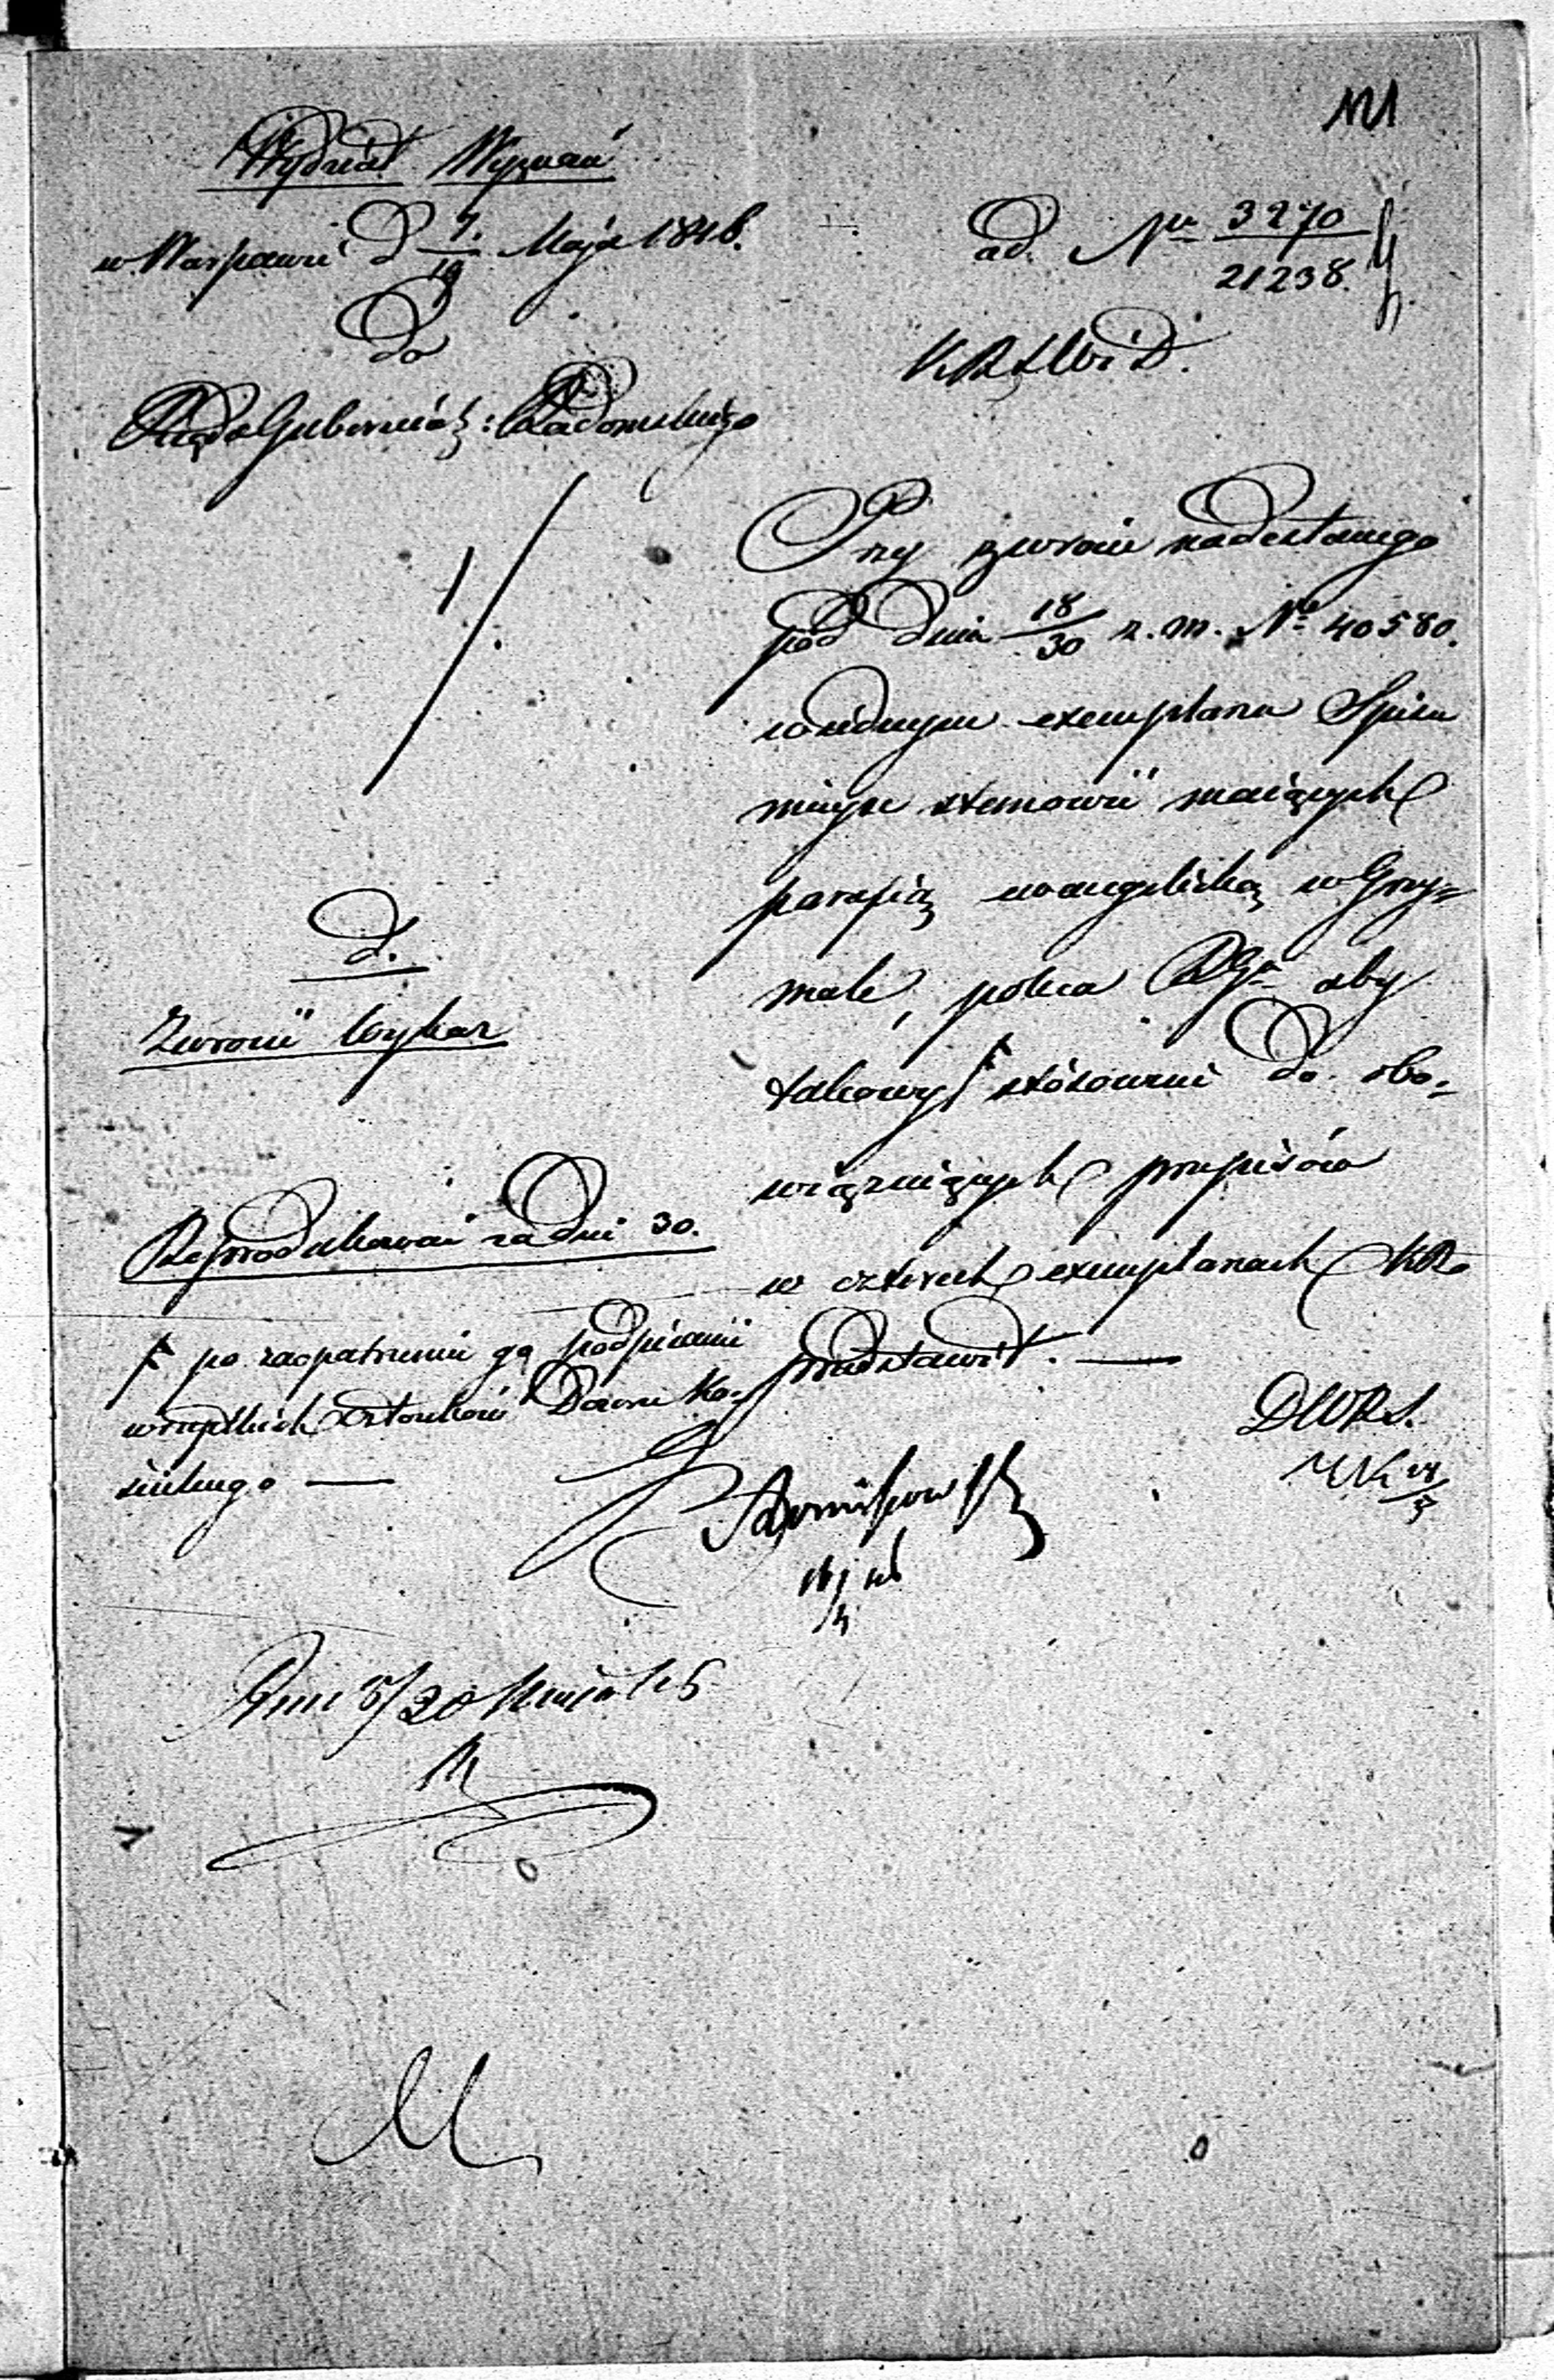 121
Wydział Wyznań
w Warszawie d 7/19 Maja 1846.
ad. Nr 3270/21238.
Do
Rządu Gubernial: Radomskiego
K.R.S.W. i D.
Przy zwrocie nadesłanego
pod dniem 18/30 z. m. Nr 40580.
w jednym exemplarzu Spisu
miejsc stanowić mających
parafią ewangelicką w Przy-
poleca RGu aby
takowy stósownie do obo-
wiązujących przepisów
w czterech exemplarzach KRo
przedstawił. —
d.
Zwrócić Wykaz
Reprodukować za dni 30.
po zaopatrzeniu go podpisami
wszystkich członków Dozoru Ko-
ścielnego —
DWRS.
Dnia 8/20 Maja 1846
M